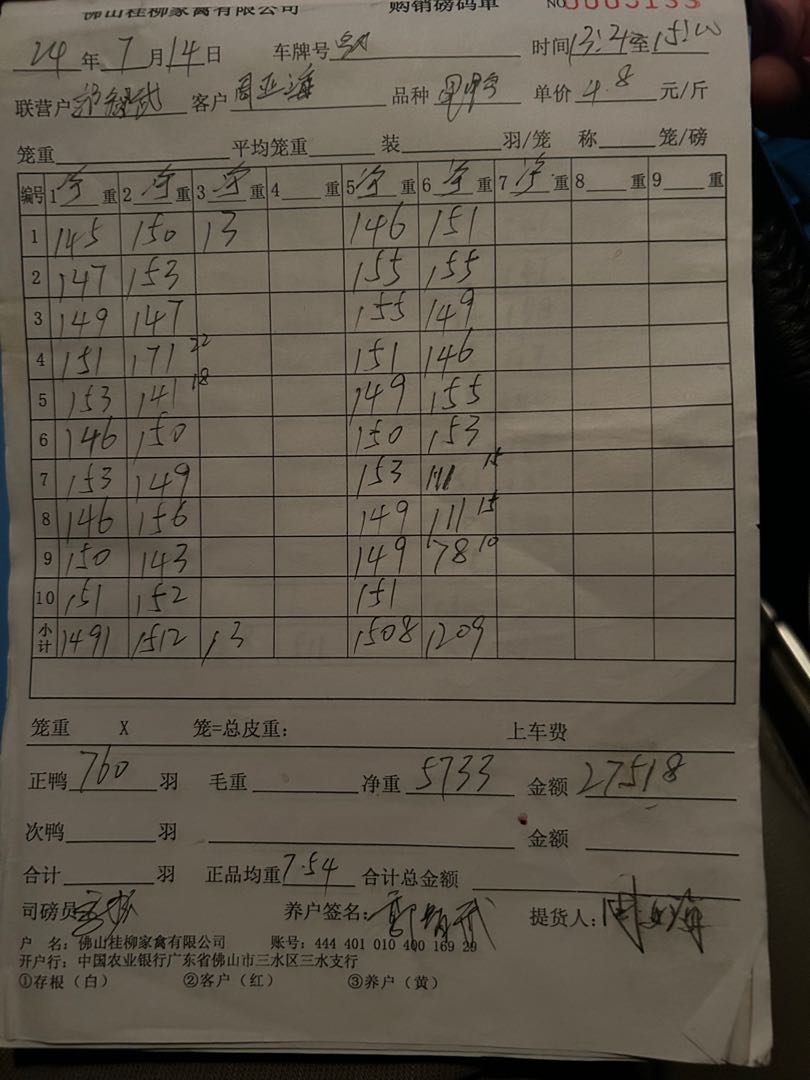 佛山桂柳家禽有限公司 购销磅码单 NO 0005133
24年7月14日 车牌号 时间13:21至15:00
联营户 客户周亚海 品种 单价4.8元/斤
笼重 平均笼重 装 羽/笼 称 笼/磅
编号 1净重 2净重 3净重 4 重 5净重 6净重 7净重 8 重 9 重
1 145 150 13 146 151
2 147 153 155 155
3 149 147 155 149
4 151 171 22 151 146
5 153 141 18 149 155
6 146 150 150 153
7 153 149 153 111 15
8 146 156 149 111 15
9 150 143 149 78 10
10 151 152 151
小计 1491 1512 13 1508 1209
笼重 X 笼=总皮重: 上车费
正鸭760羽 毛重 净重5733 金额27518
次鸭 羽 金额
合计 羽 正品均重7.54 合计总金额
司磅员 养户签名: 提货人:周亚海
户 名: 佛山桂柳家禽有限公司 账号: 444 401 010 400 169 29
开户行: 中国农业银行广东省佛山市三水区三水支行
①存根(白) ②客户(红) ③养户(黄)